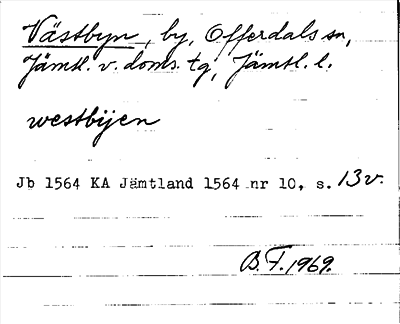 Västbyn, by, Offerdals sn,
Jämtl. v. doms. tg, Jämtl. l.
westbijen
Jb 1564 KA Jämtland 1564 nr 10, s. 13v.
B.F. 1969.